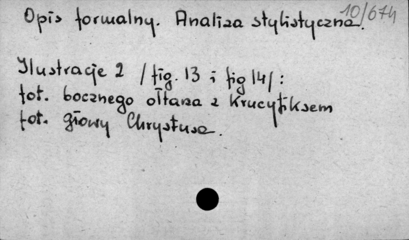 10/674
Opis formalny. Analiza stylistyczna.
Ilustracje 2 /fig. 13 i fig 14/:
fot. bocznego ołtarza z Krucyfiksem
fot. głowy Chrystusa.